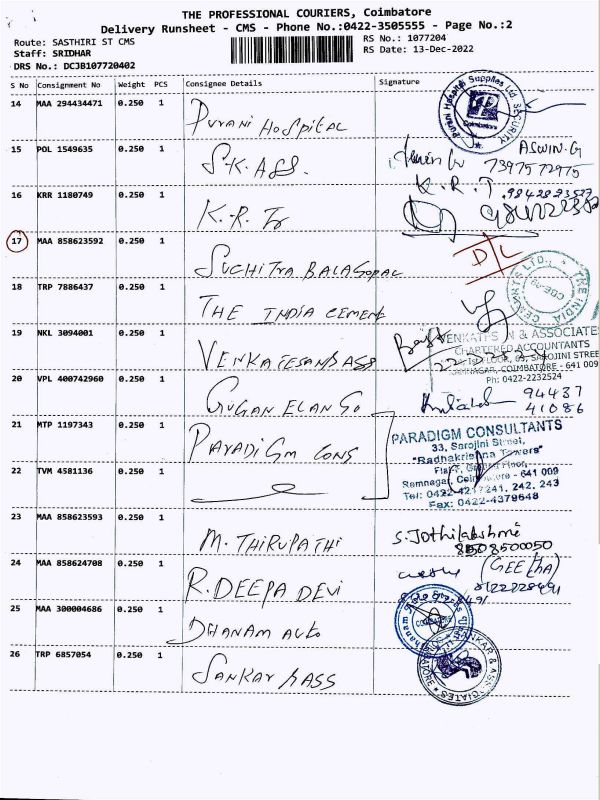 THE PROFESSIONAL COURIERS, Coimbatore
Delivery Runsheet - CMS - Phone No.:0422-3505555 - Page No.:2
Route: SASTHIRI ST CMS
RS No.: 1077204
Staff: SRIDHAR
RS Date: 13-Dec-2022
DRS No.: DCJB107720402
S No Consignment No Weight PCS Consignee Details Signature
14 MAA 294434471 0.250 1 Purani Hospital
Purani Hospital Supplies Ltd SECURITY Coimbatore
15 POL 1549635 0.250 1 S.K. ASS.
ASWIN.G
7397572975
16 KRR 1180749 0.250 1 K.R. Tr
K.R.T
17 MAA 858623592 0.250 1 SUCHITRA BALAGOPAL
D/L
18 TRP 7886437 0.250 1 THE INDIA CEMENT
THE INDIA CEMENTS LTD.
19 NKL 3094001 0.250 1 VENKATESAN & ASS
& ASSOCIATES
CHARTERED ACCOUNTANTS
SAROJINI STREET
COIMBATORE - 641 009
Ph: 0422-2232524
20 VPL 400742960 0.250 1 GUGAN ELANGO
94437
41086
21 MTP 1197343 0.250 1 PARADIGM CONS
PARADIGM CONSULTANTS
33, Sarojini Street,
"Radhakrishna Towers"
Ramnagar, Coimbatore - 641 009
Tel: 0422-4217241, 242, 243
Fax: 0422-4379648
22 TVM 4581136 0.250 1
23 MAA 858623593 0.250 1 M. THIRUPATHI
S. Jothilakshmi
8508500050
24 MAA 858624708 0.250 1 R. DEEPA DEVI
(GEETHA)
25 MAA 300004686 0.250 1 DHANAM AUTO
26 TRP 6857054 0.250 1 SANKAR & ASS
SANKAR & ASSOCIATES